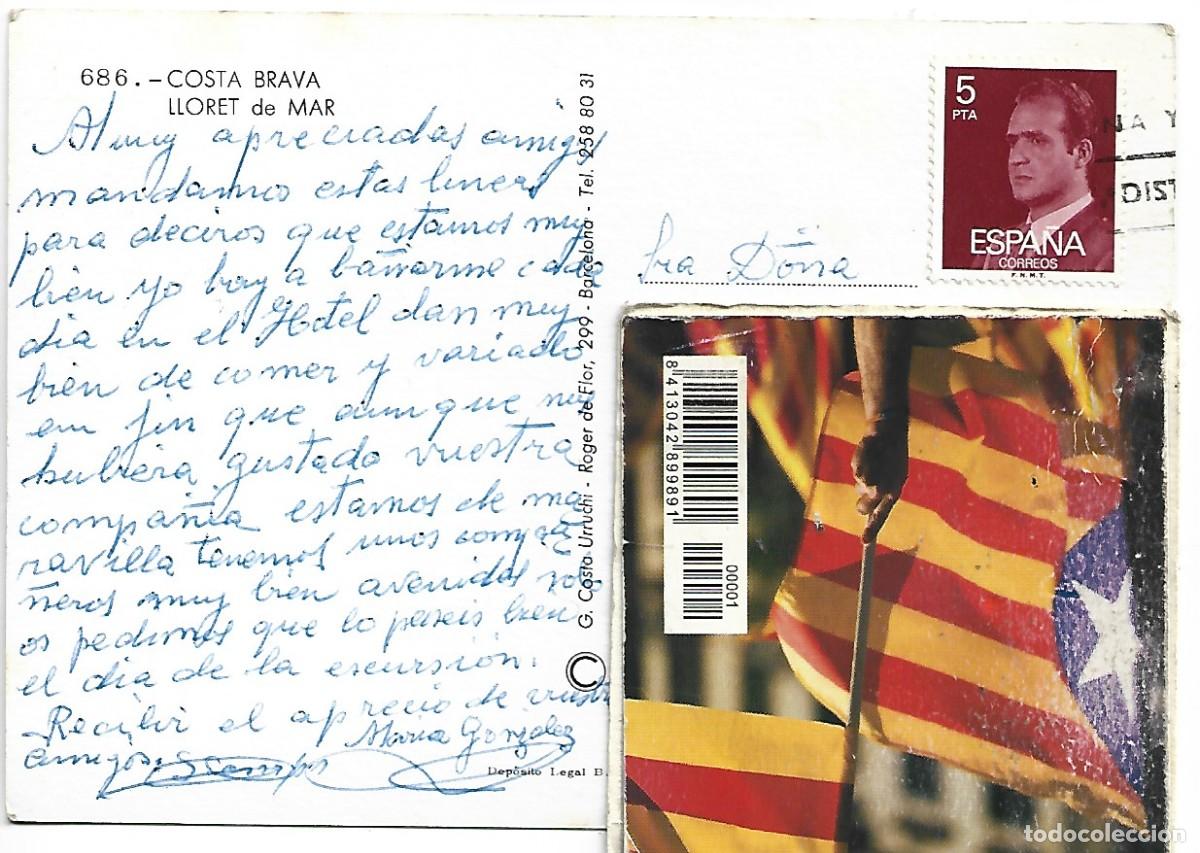 686.-COSTA BRAVA
LLORET de MAR
Muy apreciadas amigas
mandamos estas lineas
para deciros que estamos muy
bien yo boy a bañarme cada
dia en el Hotel dan muy
bien de comer y variado
en fin que aunque nos
hubiera gustado vuestra
compañia estamos de ma
ravilla tenemos unos compa
ñeros muy bien avenidos
os pedimos que lo paseis bien
el dia de la escursión.
Recibir el aprecio de vustros
amigos.
Maria Gonzalez
Depósito Legal B.
© G. Costa Urruchi - Roger de Flor, 299 - Barcelona - Tel. 258 80 31
5
PTA
ESPAÑA
CORREOS
F.N.M.T.
NA Y
DIST
Sra Doña
8413042899891
00001
todocoleccion